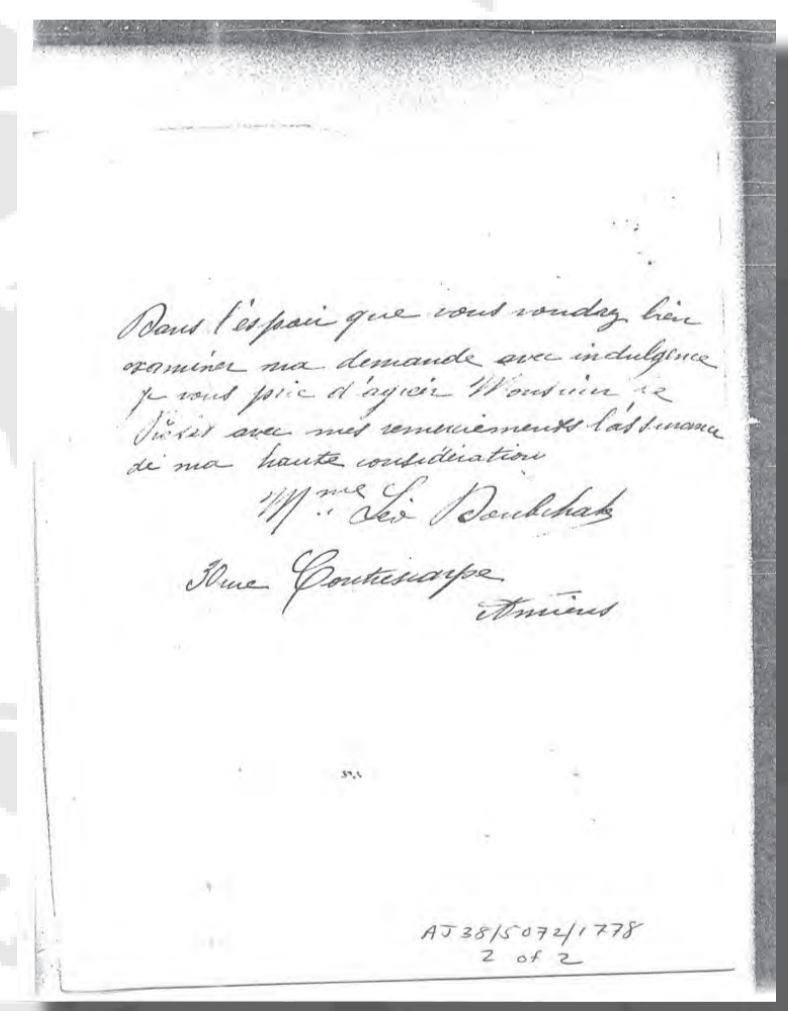 Dans l'éspoir que vous voudez bien
examiner ma demande avec indulgence
je vous prie d'agréer Monsieur le
Préfet avec mes remerciements l'assurance
de ma haute considération
Mme Léo
30 rue Contrescarpe
Amiens
AJ38/5072/1778
2 of 2